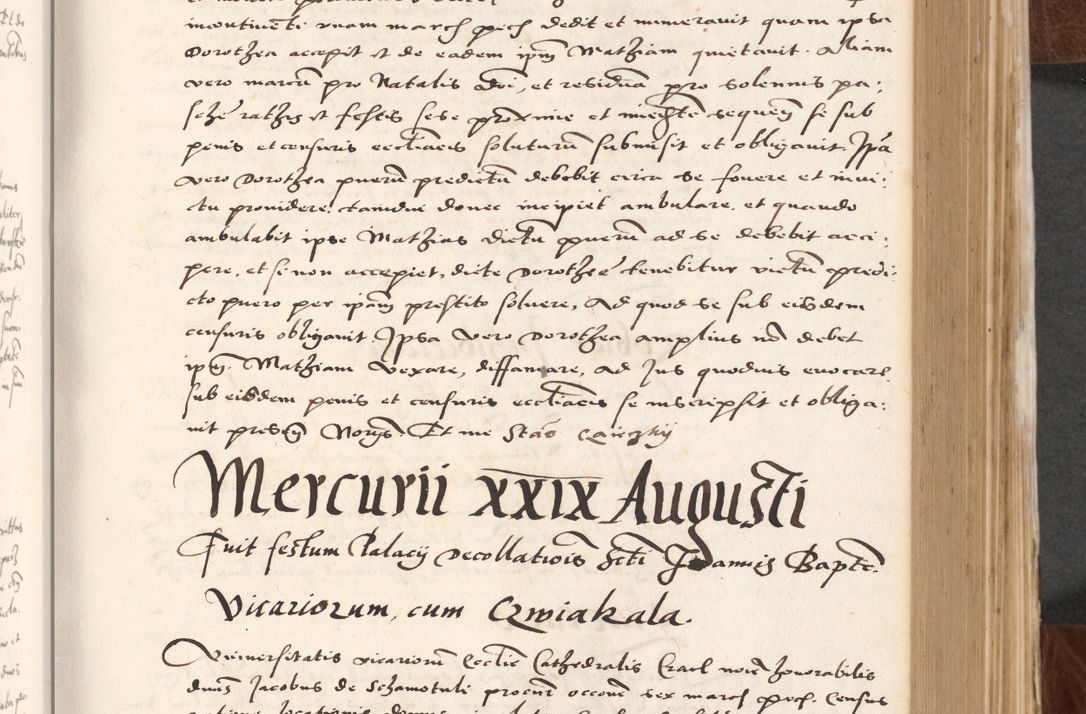 incontinenti unam march pecu dedit et numeravit quam ipsa
Dorothea accepit et de eadem ipm Mathiam quietavit. Aliam
vero marcam pro Natalis Dni, et residuam pro solennis pa-
sche festis sese proxime et sequen se sub
penis et censuris eccliacis soluturum submisit et obligavit. Ipa
vero Dorothea puerum predictum debebit circa se fovere et in vi-
ctu providere, tamdiu donec incipiet ambulare, et quando
ambulabit ipse Mathias dictum puerum ad se debebit acci-
pere, et si non accepiet, dicte Dorothee tenebitur victum predi-
cto puero per ipam prestito solvere, Ad quod se sub eisdem
censuris obligavit. Ipsa vero Dorothea amplius no debet
ipm Mathiam vexare, diffamare, ad Jus quodvis evocare
sub eisdem penis et censuris eccliacis se inscripsit et obliga-
vit presen Et me Stao
Mercurii XXIX Augusti
Fuit festum Palacij Decollatiois Scti Joannis Bapte.
Vicariorum, cum Czwiakala.
Universitatis vicariorum Ecclie Cathedralis Cracl noie honorabilis
dnus Jacobus de Schamotuli procur occone sex march pec. Census